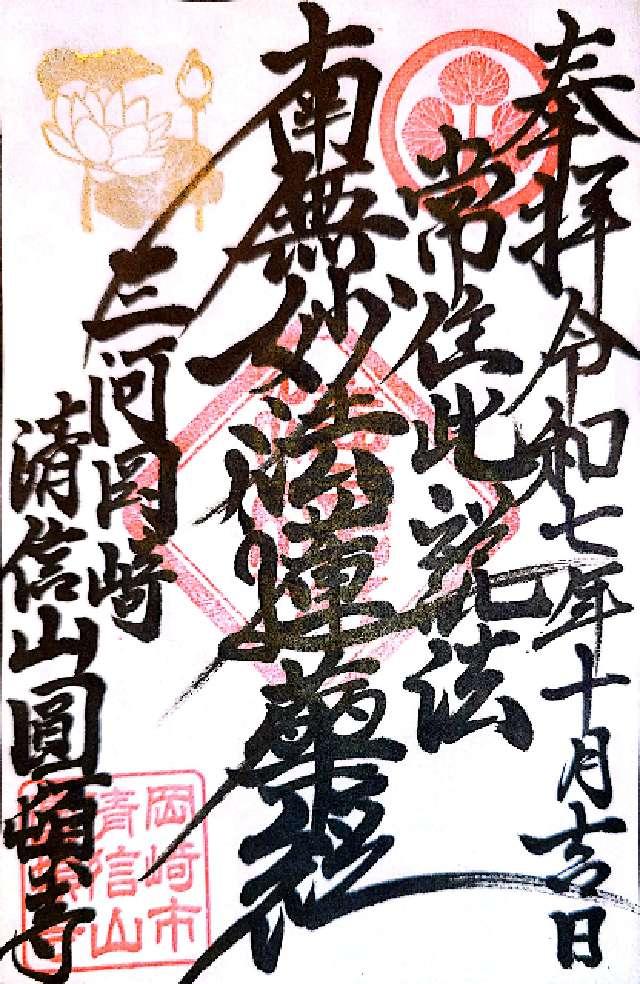 奉拝 令和七年十月吉日
常住此説法
南無妙法蓮華経
三河岡崎
清信山圓頓寺
岡崎市
清信山